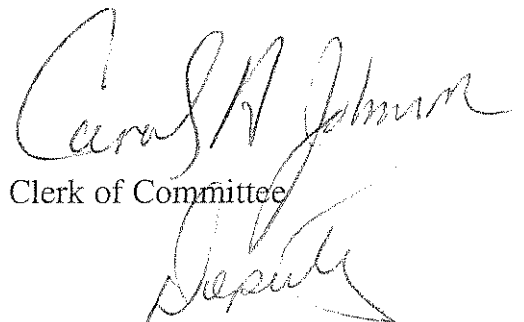 Carol A Johnson
Clerk of Committee
Deputy